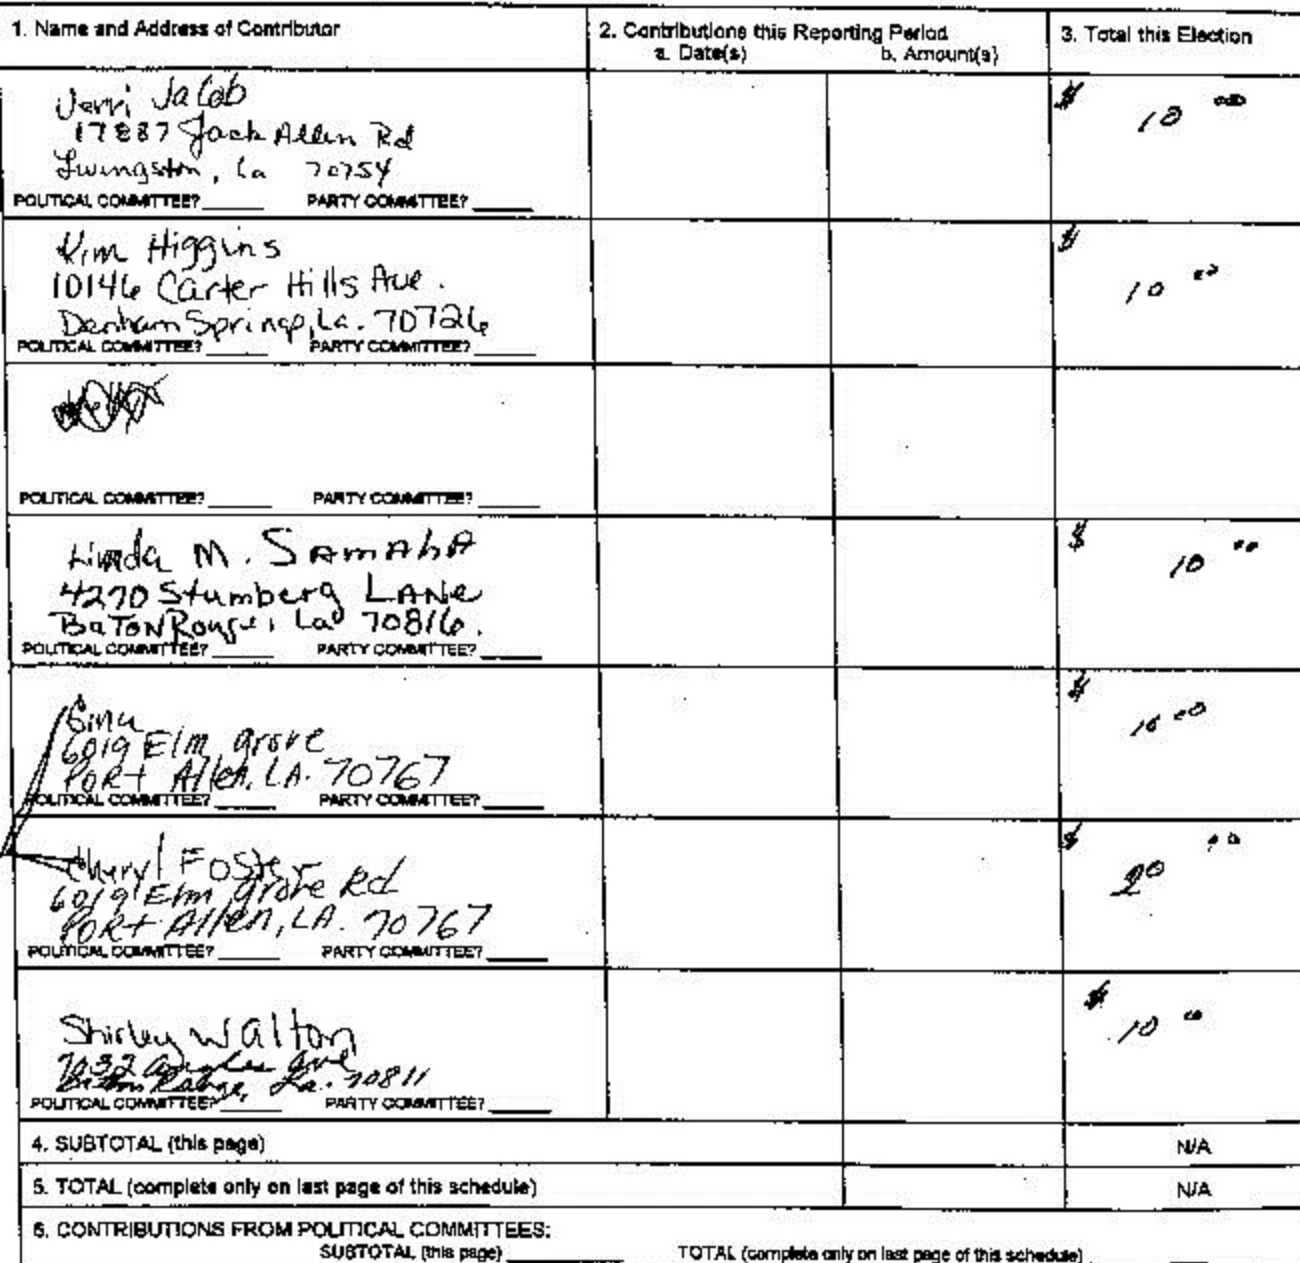 1. Name and Address of Contributor
2. Contributions this Reporting Period
a. Date(s) b. Amount(s)
3. Total this Election
Jerri Jacob
17887 Jack Allen Rd
Livingston, La 70754
$ 10 00
POLITICAL COMMITTEE? PARTY COMMITTEE?
Kim Higgins
10146 Carter Hills Ave.
Denham Springs, La. 70726
$ 10 00
POLITICAL COMMITTEE? PARTY COMMITTEE?
POLITICAL COMMITTEE? PARTY COMMITTEE?
Linda M. Samaha
4270 Stumberg Lane
Baton Rouge, La 70816.
$ 10 00
POLITICAL COMMITTEE? PARTY COMMITTEE?
Gina
6019 Elm grove
Port Allen, LA. 70767
$ 10 00
POLITICAL COMMITTEE? PARTY COMMITTEE?
Cheryl Foster
6019 Elm grove Rd
Port Allen, LA. 70767
$ 20 00
POLITICAL COMMITTEE? PARTY COMMITTEE?
Shirley Walton
7032 Ave
Baton Rouge, La. 70811
$ 10 00
POLITICAL COMMITTEE? PARTY COMMITTEE?
4. SUBTOTAL (this page) N/A
5. TOTAL (complete only on last page of this schedule) N/A
6. CONTRIBUTIONS FROM POLITICAL COMMITTEES:
SUBTOTAL (this page) TOTAL (complete only on last page of this schedule)